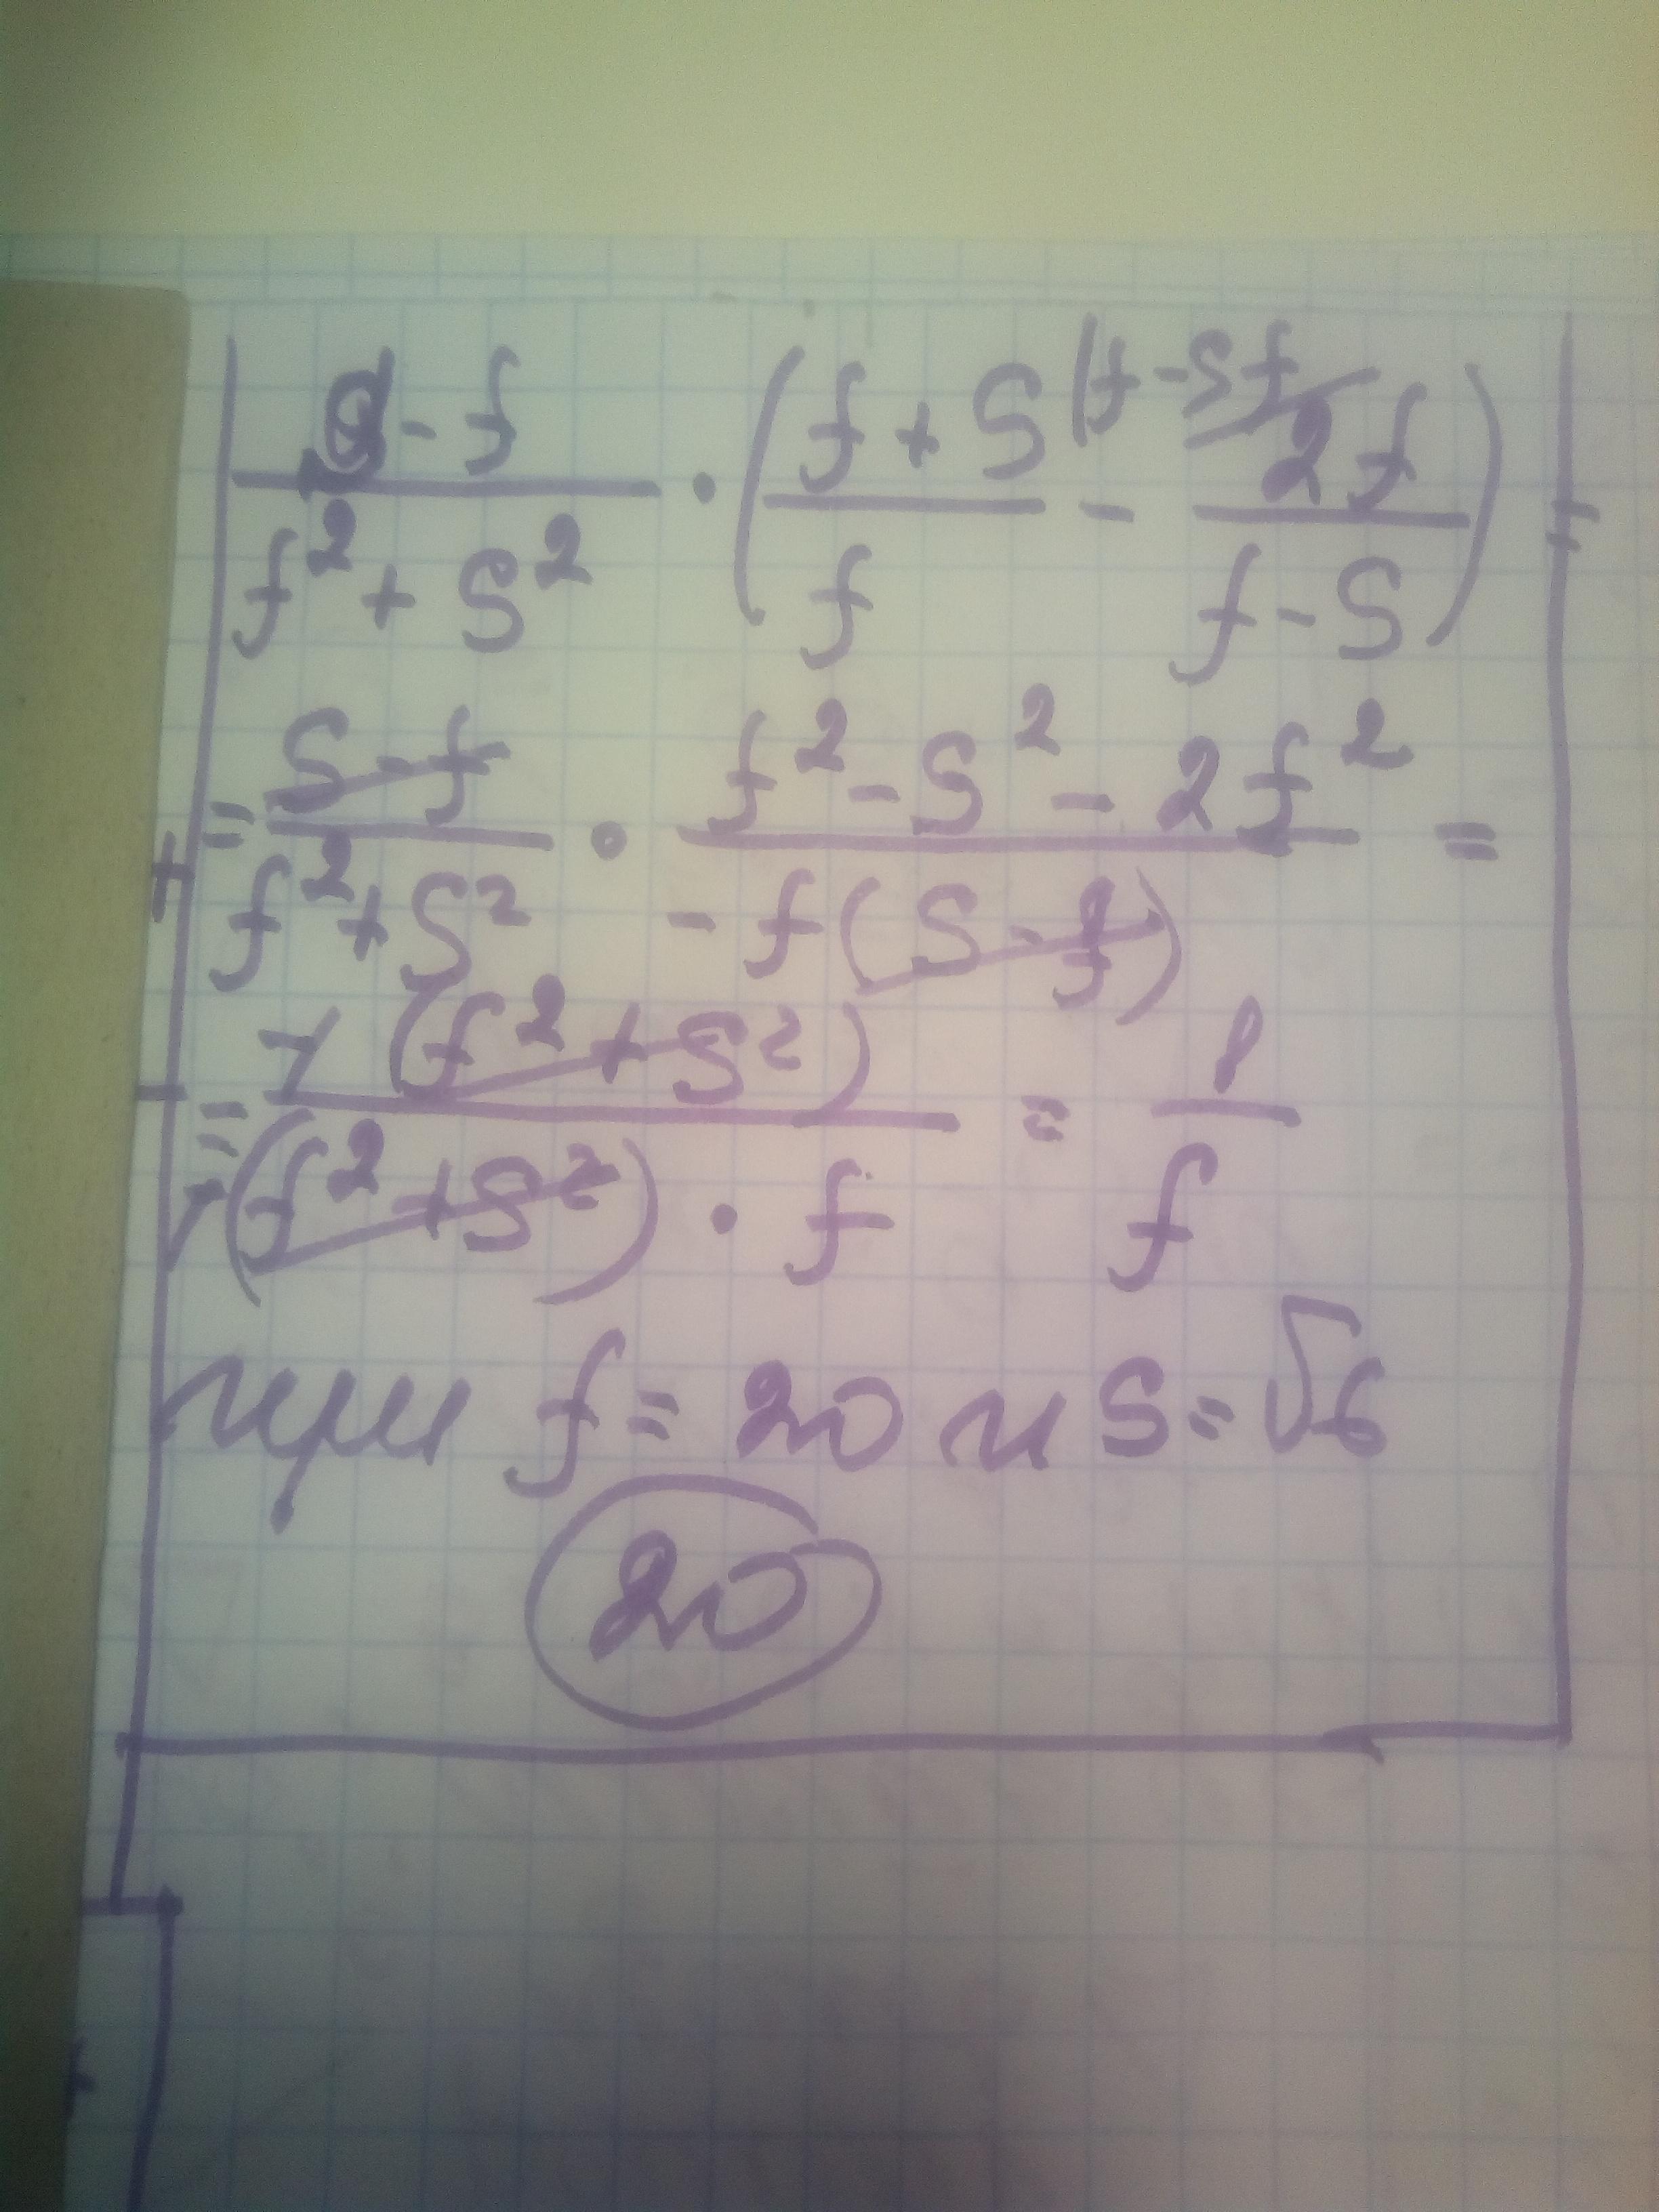 (S-f)/(f²+S²) · ((f+S)/f (f-S f - 2f/(f-S)) =
= (S-f)/(f²+S²) · (f²-S²-2f²)/(-f(S-f)) =
= -(f²+S²)/(-(f²+S²)·f) = 1/f
при f=20 и S=√6
20